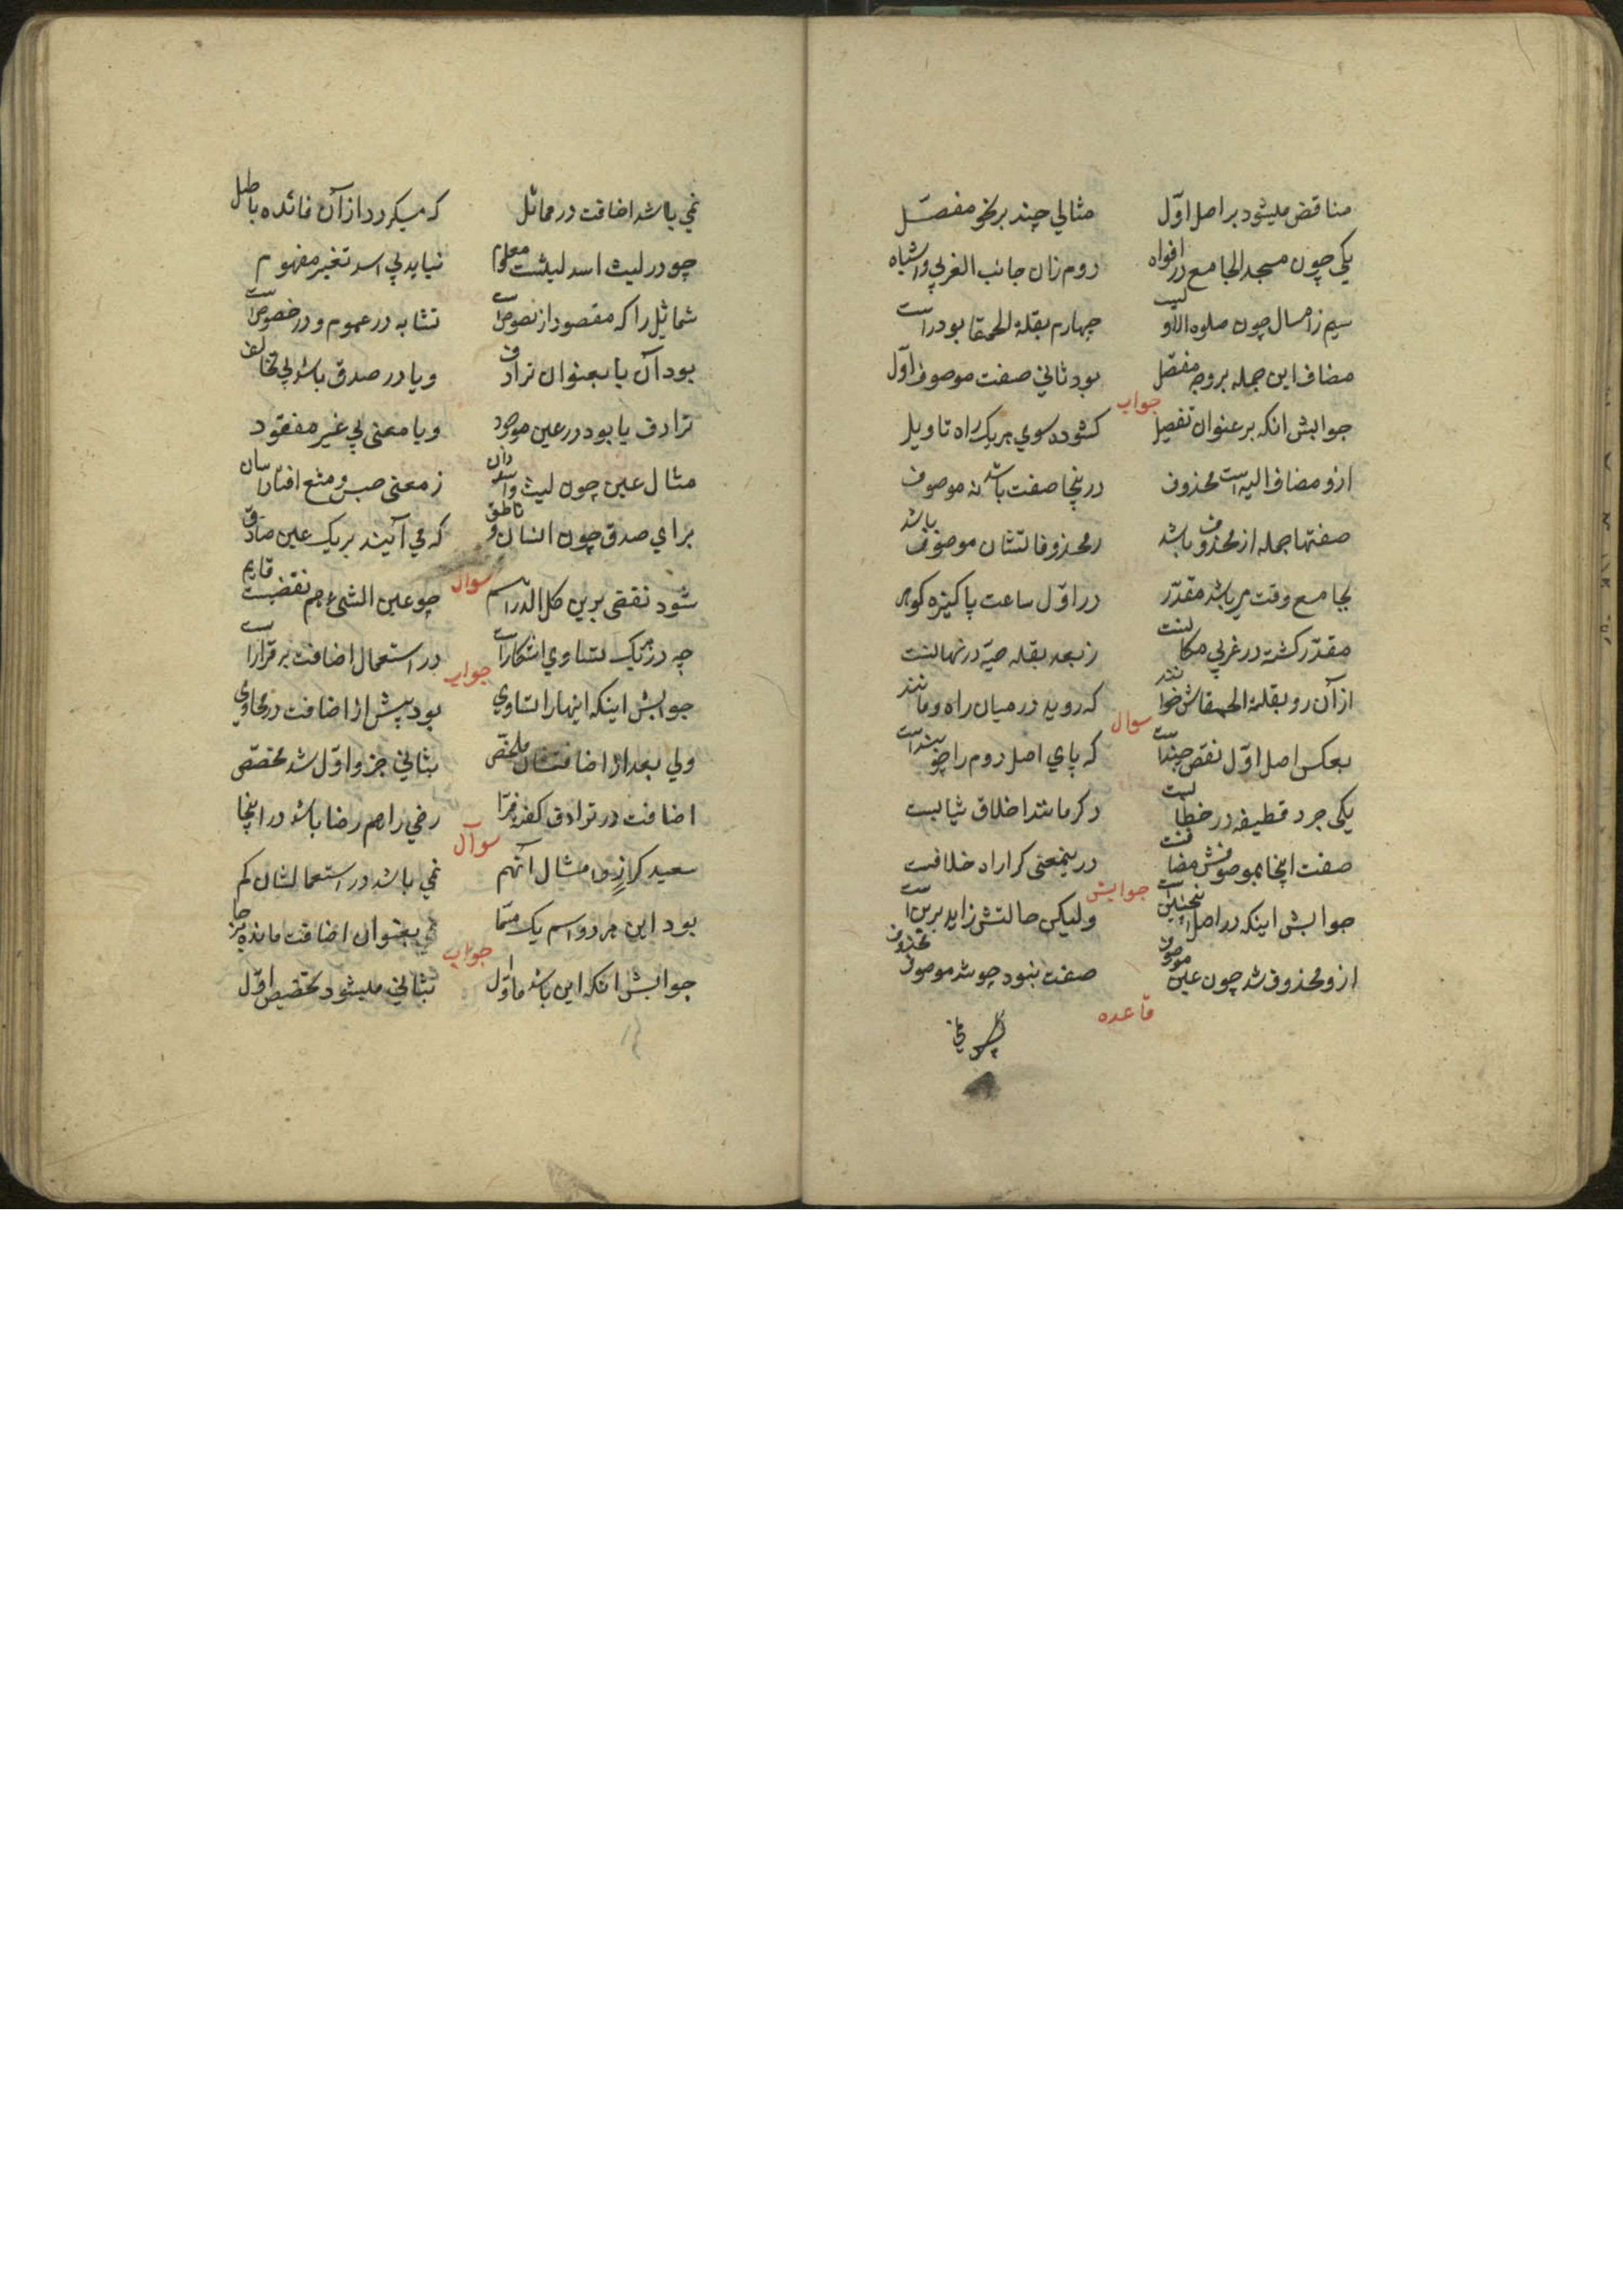 مناقض میشود بر اصل اوّل مثالی چند بر نحو مفصّل
یکی چون مسجد الجامع در افواه دوم زان جانب الغربی و اشباه
سیم زامسال چون صلوه الاولیست چهارم بقلة الحمقا بود راست
مضاف این جمله بر وجه مفصّل بود ثانی صفت موصوف اوّل
جواب
جوابش انکه بر عنوان تفصیل کشوده سوی هریک راه تاویل
ازو مضاف الیه است محذوف درینجا صفت باشد نه موصوف
صفتها جمله از محذوف باشد محذوفاتشان موصوف باشد
بجامع وقت میباشد مقدّر در اوّل ساعت پاکیزه کوهر
مقدّر کشته در غربی مکانست ز بعد بقله حبّه در نهانست
از آن رو بقلة الحمقاش خوانند که روید در میان راه و مانند
سوال
بعکس اصل اوّل نقض چنداست که پای اصل دوم را چو بنداست
یکی جرد قطیفه در خطابست دکر مانند اخلاق ثیابست
صفت اینجا بموصوفش مضافست درینمعنی کرا راه خلافست
جوابش
جوابش اینکه در اصل اینچنین است ولیکن حالتش زاید برین است
ازو محذوف شد چون عین موصوف صفت بنبود چو شد موصوف محذوف
قاعده
نمی باشد اضافت در مماثل که میکردد از آن فائده باطل
چو در لیث اسد لیثت معلوم نیاید پی اسد تغیر مفهوم
مماثل را که مقصود از نصوص است تشابه در عموم و در خصوص است
بود آن یا بعنوان ترادف و یا در صدق باشد بی تخالف
ترادف یا بود در عین موجود و یا معنی پی غیر مفقود
مثال عین چون لیث و اسد دان ز معنی حبس و منع افتاد آسان
برای صدق چون انسان و ناطق که می آیند بر یک عین صادق
سوال
شود نقضی برین کل الدراهم چو عین الشیء هم نقضیست قایم
چه در هریک تساوی اشکار است در استعمال اضافت برقرار است
جواب
جوابش اینکه اینها را تساوی بود پیش از اضافت در محاوی
ولی بعد از اضافتشان ملخص بثانی جزو اوّل شد مخصّص
سوال
اضافت در ترادف کفته فرّا رضی را هم رضا باشد در اینجا
سعید کرز ان مثال انهم نمی باشد در استعمالشان کم
بود این هر دو اسم یک مسمّا بعنوان اضافت مانده برجا
جواب
جوابش انکه این باشد ماوّل بثانی میشود تخصیص اوّل